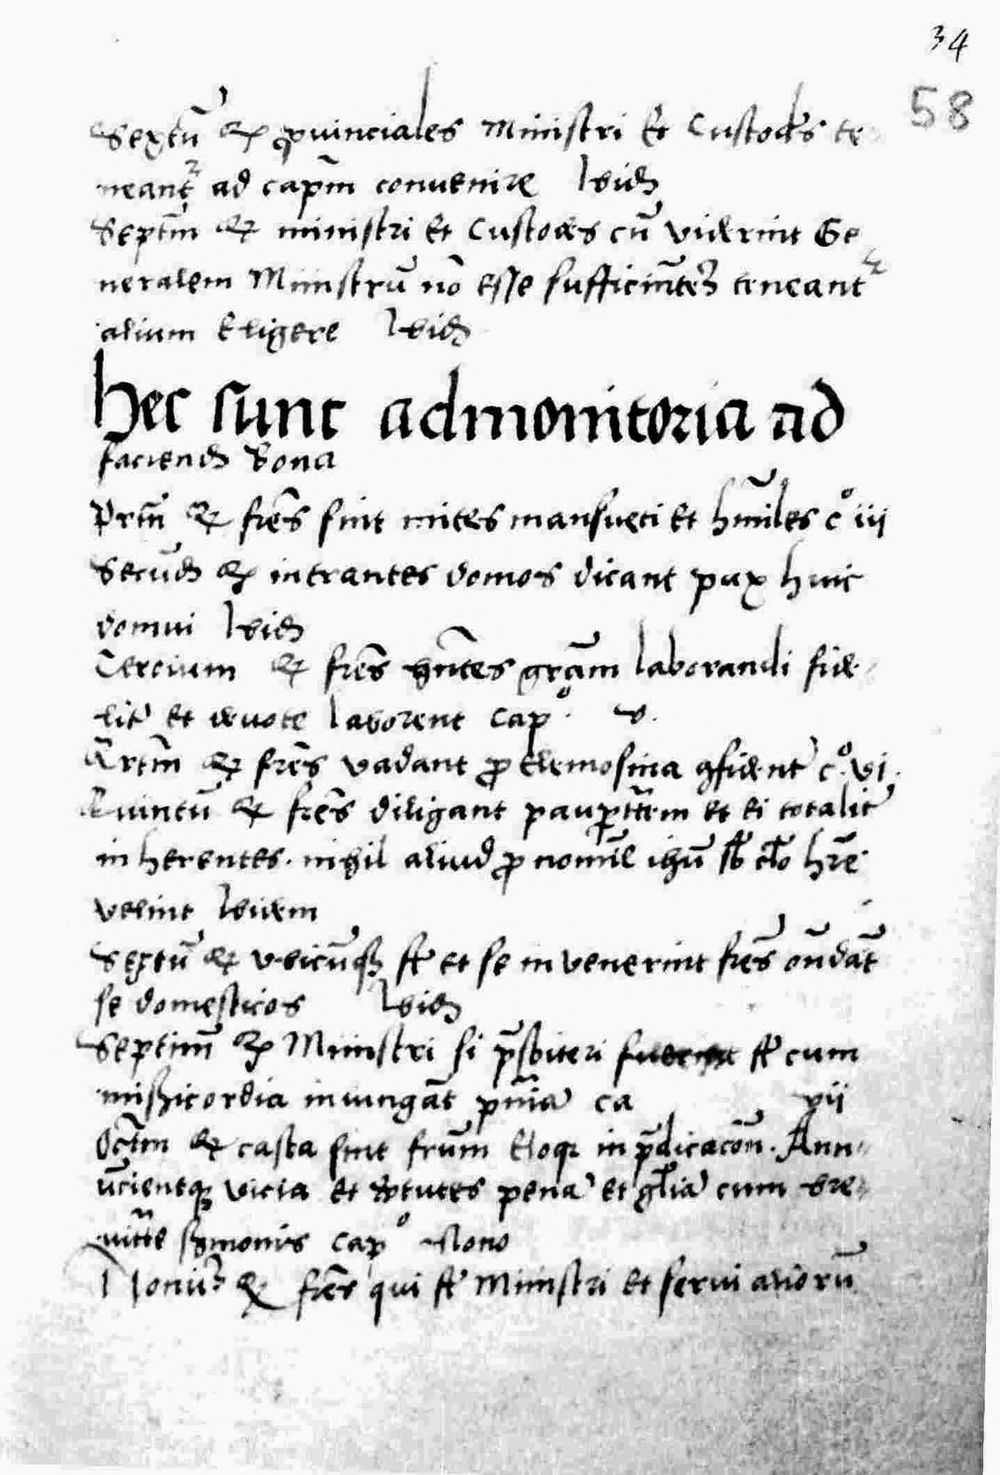 34
58
Sextū ꝙ ꝓuinciales Ministri Et Custodes te
neant᷑ ad capłm convenire Ibid̄
Septīm ꝙ ministri Et Custodes cū viderint Ge
neralem Ministrū nō esse sufficiente᷑ teneant᷑
alium Eligere Ibid̄
hec sunt admonitoria ad
faciend̄ bona
Prīm ꝙ frēs sint mites mansueti Et hūiles c° iij
Secūd̄ ꝙ intrantes domos dicant pax huic
domui Ibid̄
Tercium ꝙ frēs hñtes grām laborandi fide
lit᷑ Et deuote laborent Cap° v.
Qrtm̄ ꝙ frēs vadant ꝓ Elemosina ꝯfident᷑ c° vi.
Quintū ꝙ frēs diligant paupt̄tem Et Ei totalit᷑
inherentes. nihil aliud ꝓ nomīe ihū sb̄ cęlo hr̄e
velint Ibidem
Sextū ꝙ vbicūqꝫ st̄ et se invenerint frēs oñdāt
se domesticos Ibid̄
Septimū ꝙ Ministri si p̄sbiteri st̄ cum
misȝicordia iniungāt pn̄ia᷑ ca vii
Octm̄ ꝙ casta sint frūm Eloqꝫ in p̄dicacōn. Ann
ūcientqꝫ vicia Et v̓tutes pena᷑ et gl̄ia᷑ cum bre
uit̄te s̓monis Cap° Nono
Nonū ꝙ frēs qui st̄ Ministri Et serui aliorū